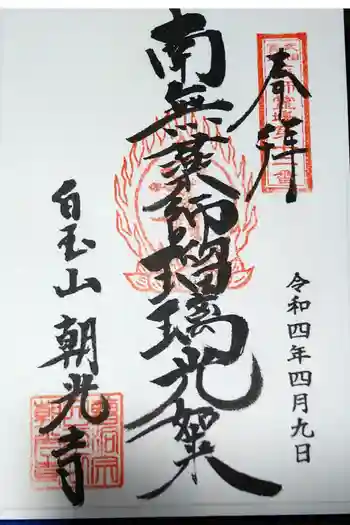 奉拝
南無薬師瑠璃光如来
白玉山 朝光寺
令和四年四月九日